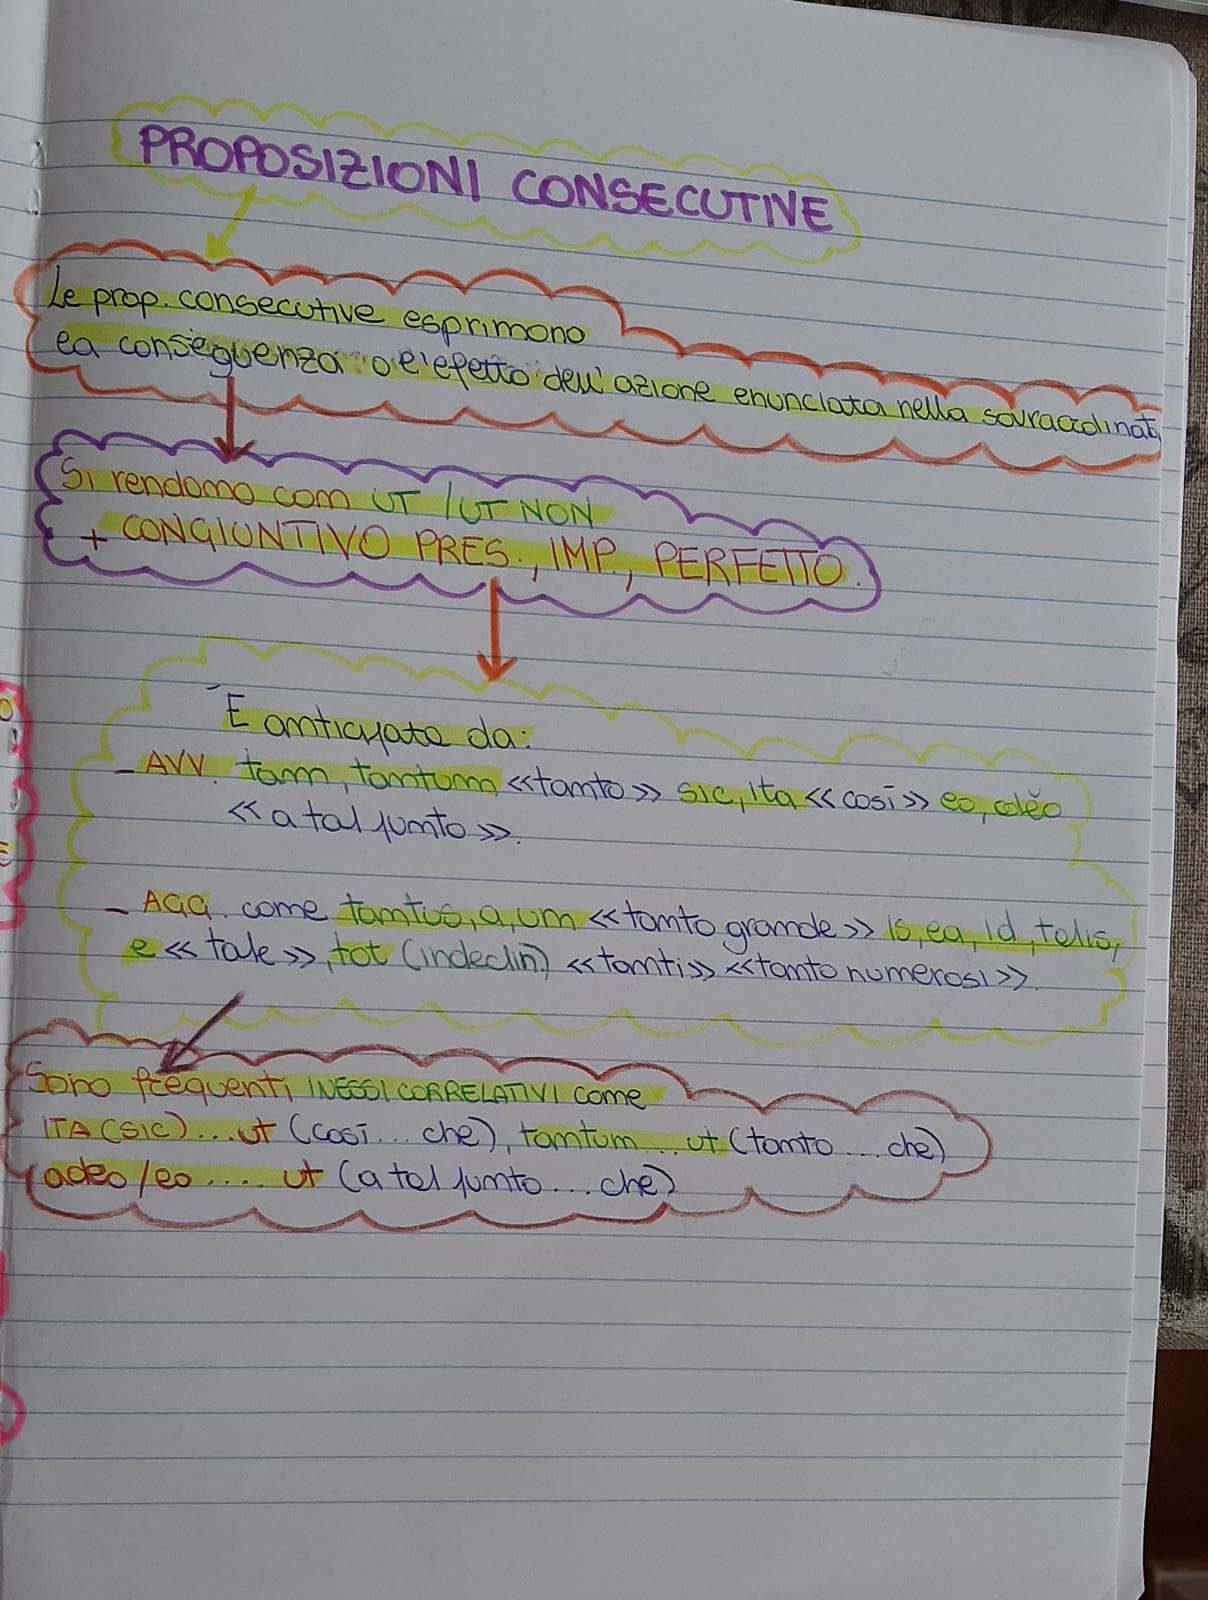 PROPOSIZIONI CONSECUTIVE
Le prop. consecutive esprimono
la conseguenza o l'efetto dell'azione enunciata nella sovraordinat
Si rendono con UT / UT NON
+ CONGIUNTIVO PRES., IMP., PERFETTO.
È anticipata da:
- AVV. tam, tantum «tanto» sic, ita «così» eo, adĕo
«a tal punto».
- AGG. come tantus, a, um «tanto grande» is, ea, id, talis,
e «tale», tot (indeclin.) «tanti» «tanto numerosi».
Sono frequenti NESSI CORRELATIVI come
ITA (SIC)... ut (così... che), tantum... ut (tanto... che)
adeo/eo .... ut (a tal punto... che)